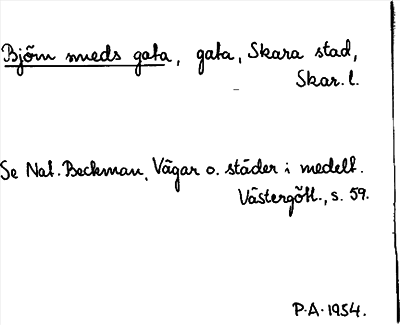 Björn smeds gata, gata, Skara stad,
Skar. l.
Se Nat. Beckman, Vägar o. städer i medelt.
Västergötl., s. 59.
P.A. 1954.